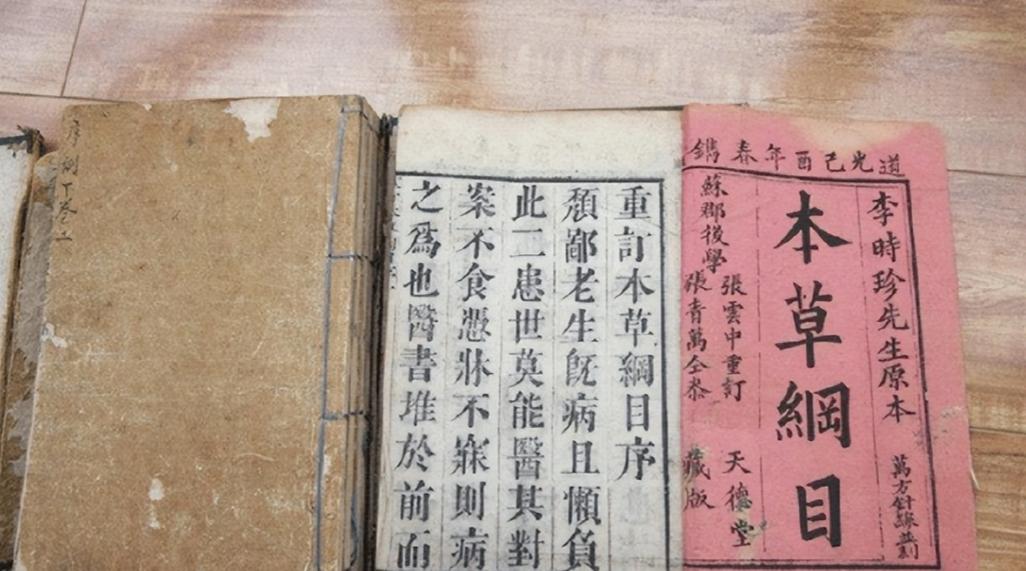 道光己酉年春鐫
李時珍先生原本
萬方針線
本草綱目
蘇郡後學
張雲中重訂
張青萬全叅
天德堂
藏版
重訂本草綱目序
頽鄙老生旣病且懶負
此二患世莫能醫其對
案不食慿牀不寐則病
之爲也醫書堆於前而
序例下卷